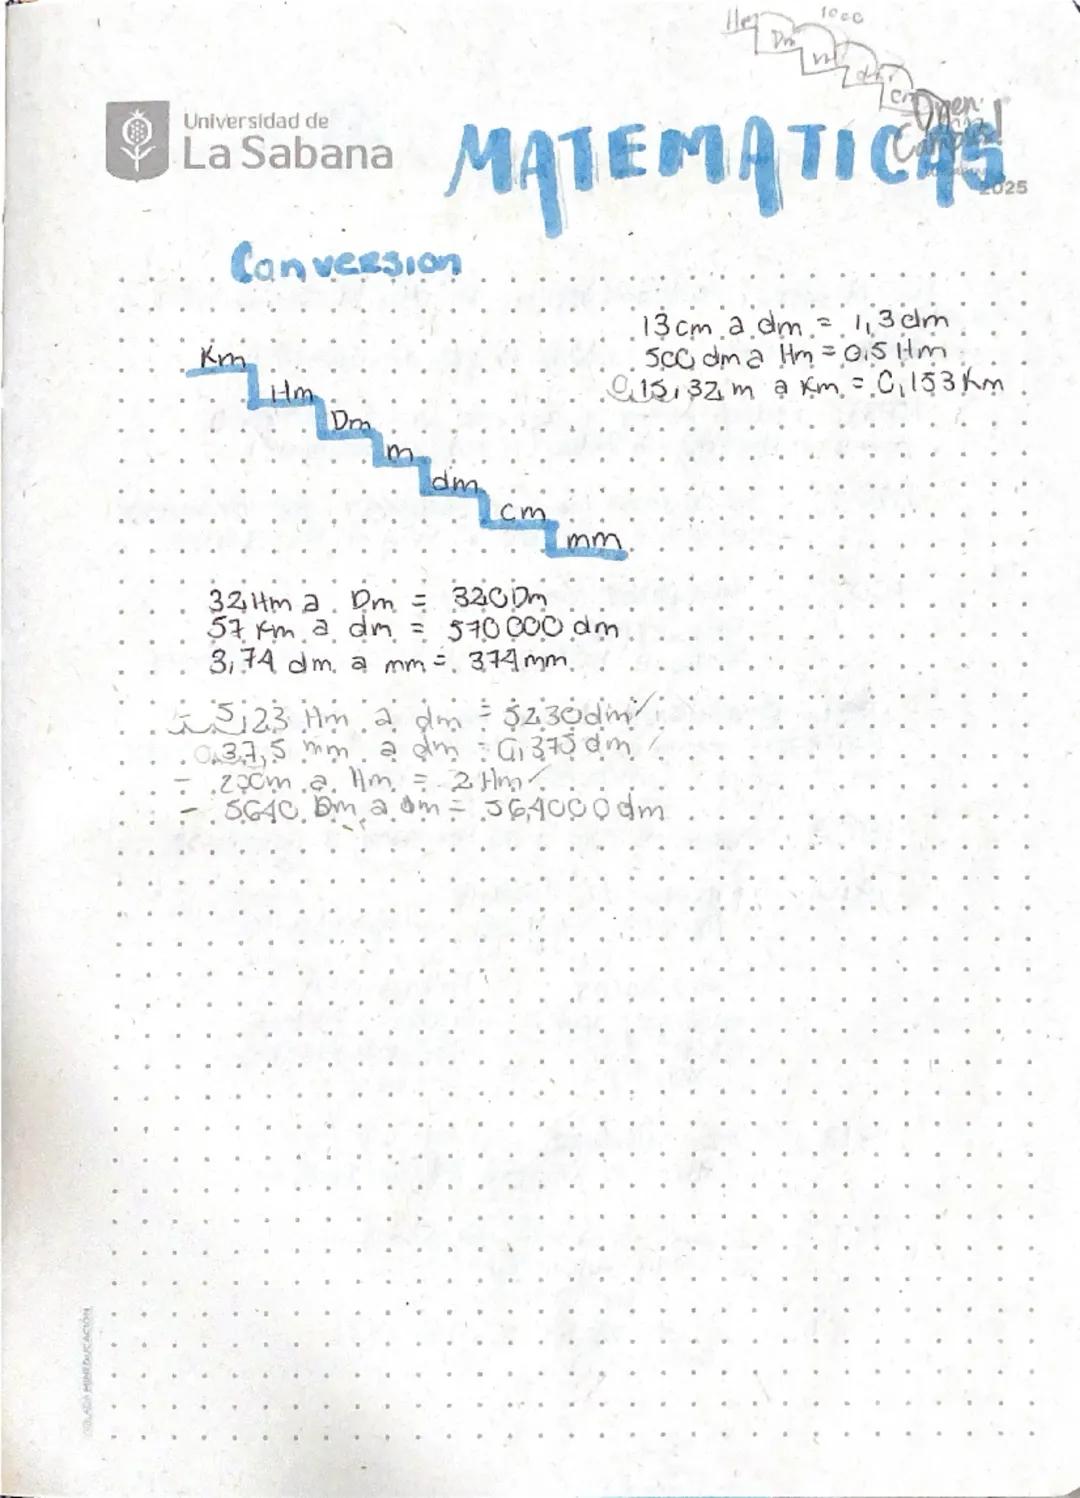 Hm 1000
Dm
m
dm
cm
Universidad de
La Sabana
MATEMATICAS
Open
Campus!
2025
Conversion
13 cm a dm = 1,3 dm
500 dm a Hm = 0,5 Hm
0,15,32 m a Km = 0,153 Km
Km
Hm
Dm
m
dm
cm
mm
32 Hm a Dm = 320 Dm
57 Km a dm = 570 000 dm
3,74 dm a mm = 374 mm
5,23 Hm a dm = 5230 dm
0,37,5 mm a dm = 0,375 dm
- 200m a Hm = 2 Hm
- 5640 Dm a dm = 564000 dm